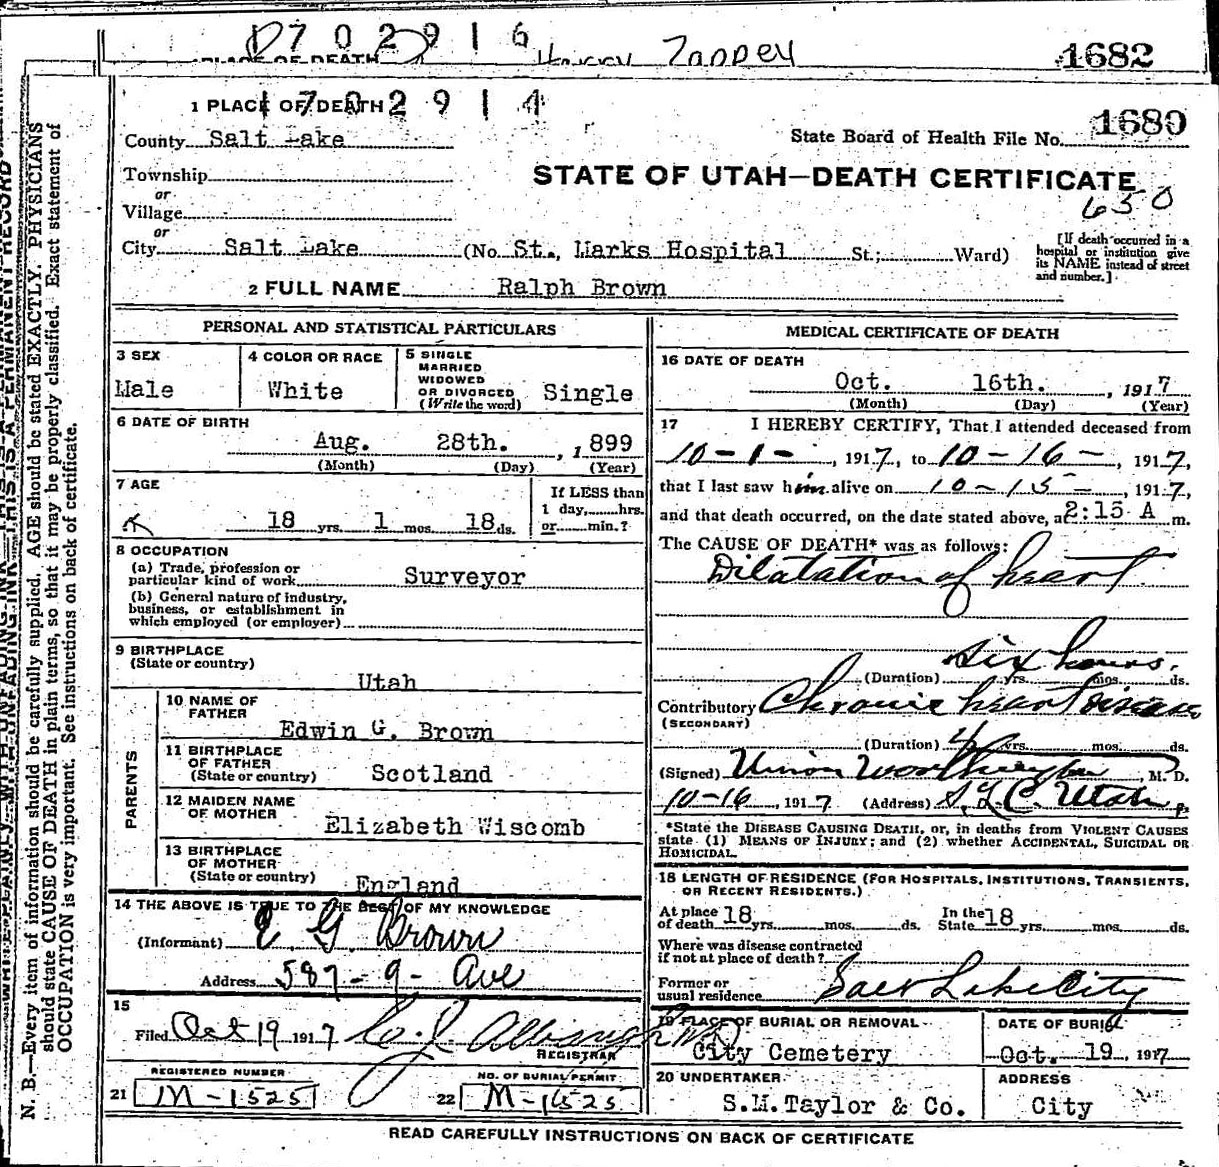 1702916
Harry Toppey 1682
PLACE OF DEATH
1 PLACE OF DEATH
1702914
County Salt Lake
State Board of Health File No. 1680
Township
or
Village
or
STATE OF UTAH—DEATH CERTIFICATE
650
City Salt Lake (No. St., Marks Hospital St.; Ward)
[If death occurred in a
hospital or institution give
its NAME instead of street
and number.]
2 FULL NAME Ralph Brown
PERSONAL AND STATISTICAL PARTICULARS
3 SEX
Male
4 COLOR OR RACE
White
5 SINGLE
MARRIED
WIDOWED
OR DIVORCED
(Write the word) Single
6 DATE OF BIRTH
Aug. 28th. , 1899
(Month) (Day) (Year)
7 AGE
18 yrs. 1 mos. 18 ds.
If LESS than
1 day, hrs.
or min.?
8 OCCUPATION
(a) Trade, profession or
particular kind of work Surveyor
(b) General nature of industry,
business, or establishment in
which employed (or employer)
9 BIRTHPLACE
(State or country)
Utah
PARENTS
10 NAME OF
FATHER
Edwin G. Brown
11 BIRTHPLACE
OF FATHER
(State or country) Scotland
12 MAIDEN NAME
OF MOTHER
Elizabeth Wiscomb
13 BIRTHPLACE
OF MOTHER
(State or country) England
14 THE ABOVE IS TRUE TO THE BEST OF MY KNOWLEDGE
(Informant) E. G. Brown
Address 587 - 9 - Ave
15
Filed Oct 19 1917
REGISTRAR
REGISTERED NUMBER
21 M-1525
NO. OF BURIAL PERMIT
22 M-1525
MEDICAL CERTIFICATE OF DEATH
16 DATE OF DEATH
Oct. 16th. , 1917
(Month) (Day) (Year)
17 I HEREBY CERTIFY, That I attended deceased from
10-1- , 1917, to 10-16- , 1917,
that I last saw him alive on 10-15- , 1917,
and that death occurred, on the date stated above, a 2:15 A m.
The CAUSE OF DEATH* was as follows:
Dilatation of heart
six hours.
(Duration) yrs. mos. ds.
Contributory Chronic heart disease
(SECONDARY)
(Duration) 4 yrs. mos. ds.
(Signed) Union Worthington, M. D.
10-16 , 1917 (Address) S.L.C. Utah
*State the DISEASE CAUSING DEATH, or, in deaths from VIOLENT CAUSES
state (1) MEANS OF INJURY; and (2) whether ACCIDENTAL, SUICIDAL OR
HOMICIDAL.
18 LENGTH OF RESIDENCE (FOR HOSPITALS, INSTITUTIONS, TRANSIENTS,
OR RECENT RESIDENTS.)
At place
of death 18 yrs. mos. ds. In the
State 18 yrs. mos. ds.
Where was disease contracted
if not at place of death?
Former or
usual residence Salt Lake City
19 PLACE OF BURIAL OR REMOVAL
City Cemetery
DATE OF BURIAL
Oct. 19, 1917
20 UNDERTAKER
S.M.Taylor & Co.
ADDRESS
City
READ CAREFULLY INSTRUCTIONS ON BACK OF CERTIFICATE
WRITE PLAINLY WITH UNFADING INK—THIS IS A PERMANENT RECORD
N. B.—Every item of information should be carefully supplied. AGE should be stated EXACTLY. PHYSICIANS
should state CAUSE OF DEATH in plain terms, so that it may be properly classified. Exact statement of
OCCUPATION is very important. See instructions on back of certificate.